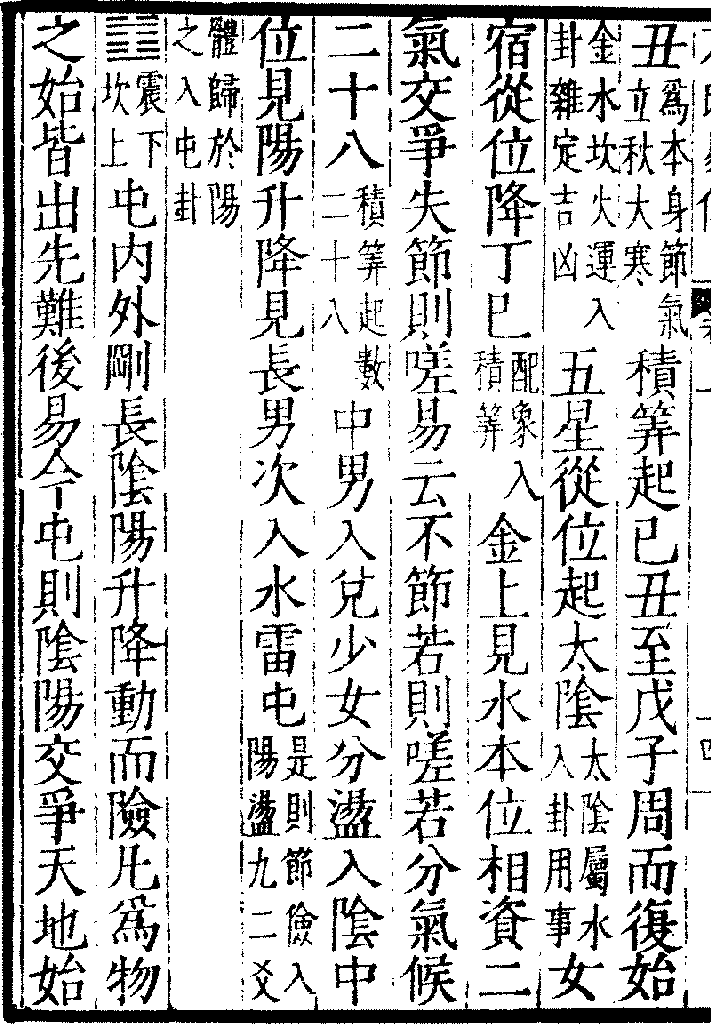 丑爲本身節氣立秋大寒積筭起己丑至戊子周而復始
金水坎火運入卦雜定吉凶五星從位起太陰太陰屬水入卦用事女
宿從位降丁巳配象入積筭金上見水本位相資二
氣交爭失節則嗟易云不節若則嗟若分氣候
二十八積筭起數二十八中男入兌少女分盪入陰中
位見陽升降見長男次入水雷屯是則節險入陽盪九二爻
體歸於陽之入屯卦
䷂震下坎上屯內外剛長陰陽升降動而險凡爲物
之始皆出先難後易今屯則陰陽交爭天地始